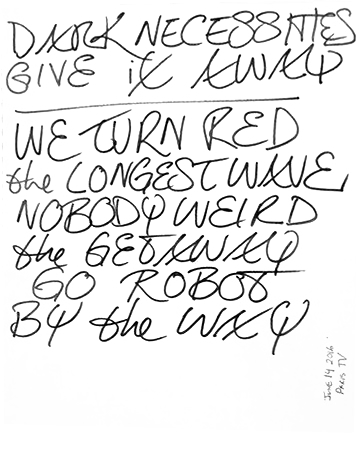 DARK NECESSITIES
GIVE iT AWAY
WE TURN RED
the LONGEST WAVE
NOBODY WEIRD
the GETAWAY
GO ROBOT
BY the WAY
JUNE 14 2016
PARIS TV